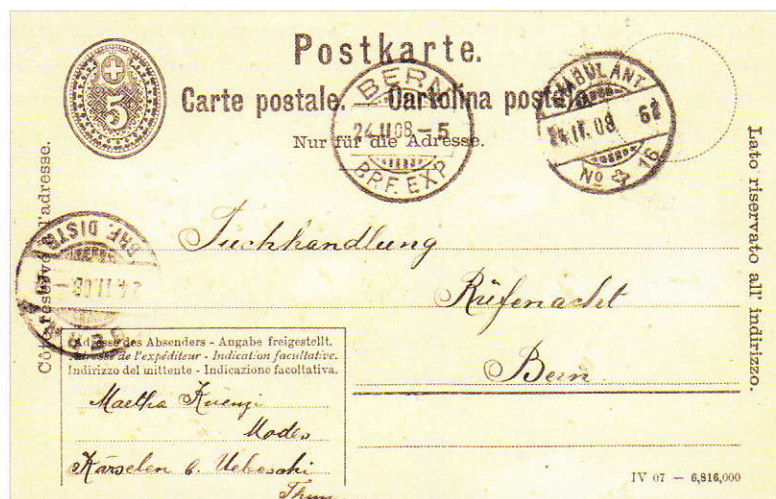 Postkarte.
5
Carte postale. Cartolina postale.
Nur für die Adresse.
BERN
24.II.08.-5
BRF. EXP.
AMBULANT
24.II.08 6
No 16
Côté réservé à l'adresse.
Lato riservato all' indirizzo.
BRF. DISTR.
24.II.08
BERN
Tuchhandlung
Rüfenacht
Bern
Adresse des Absenders - Angabe freigestellt.
Adresse de l'expéditeur - Indication facultative.
Indirizzo del mittente - Indicazione facoltativa.
Martha Kuenzi
Modes
b. Uebeschi
Thun
IV 07 — 6,816,000